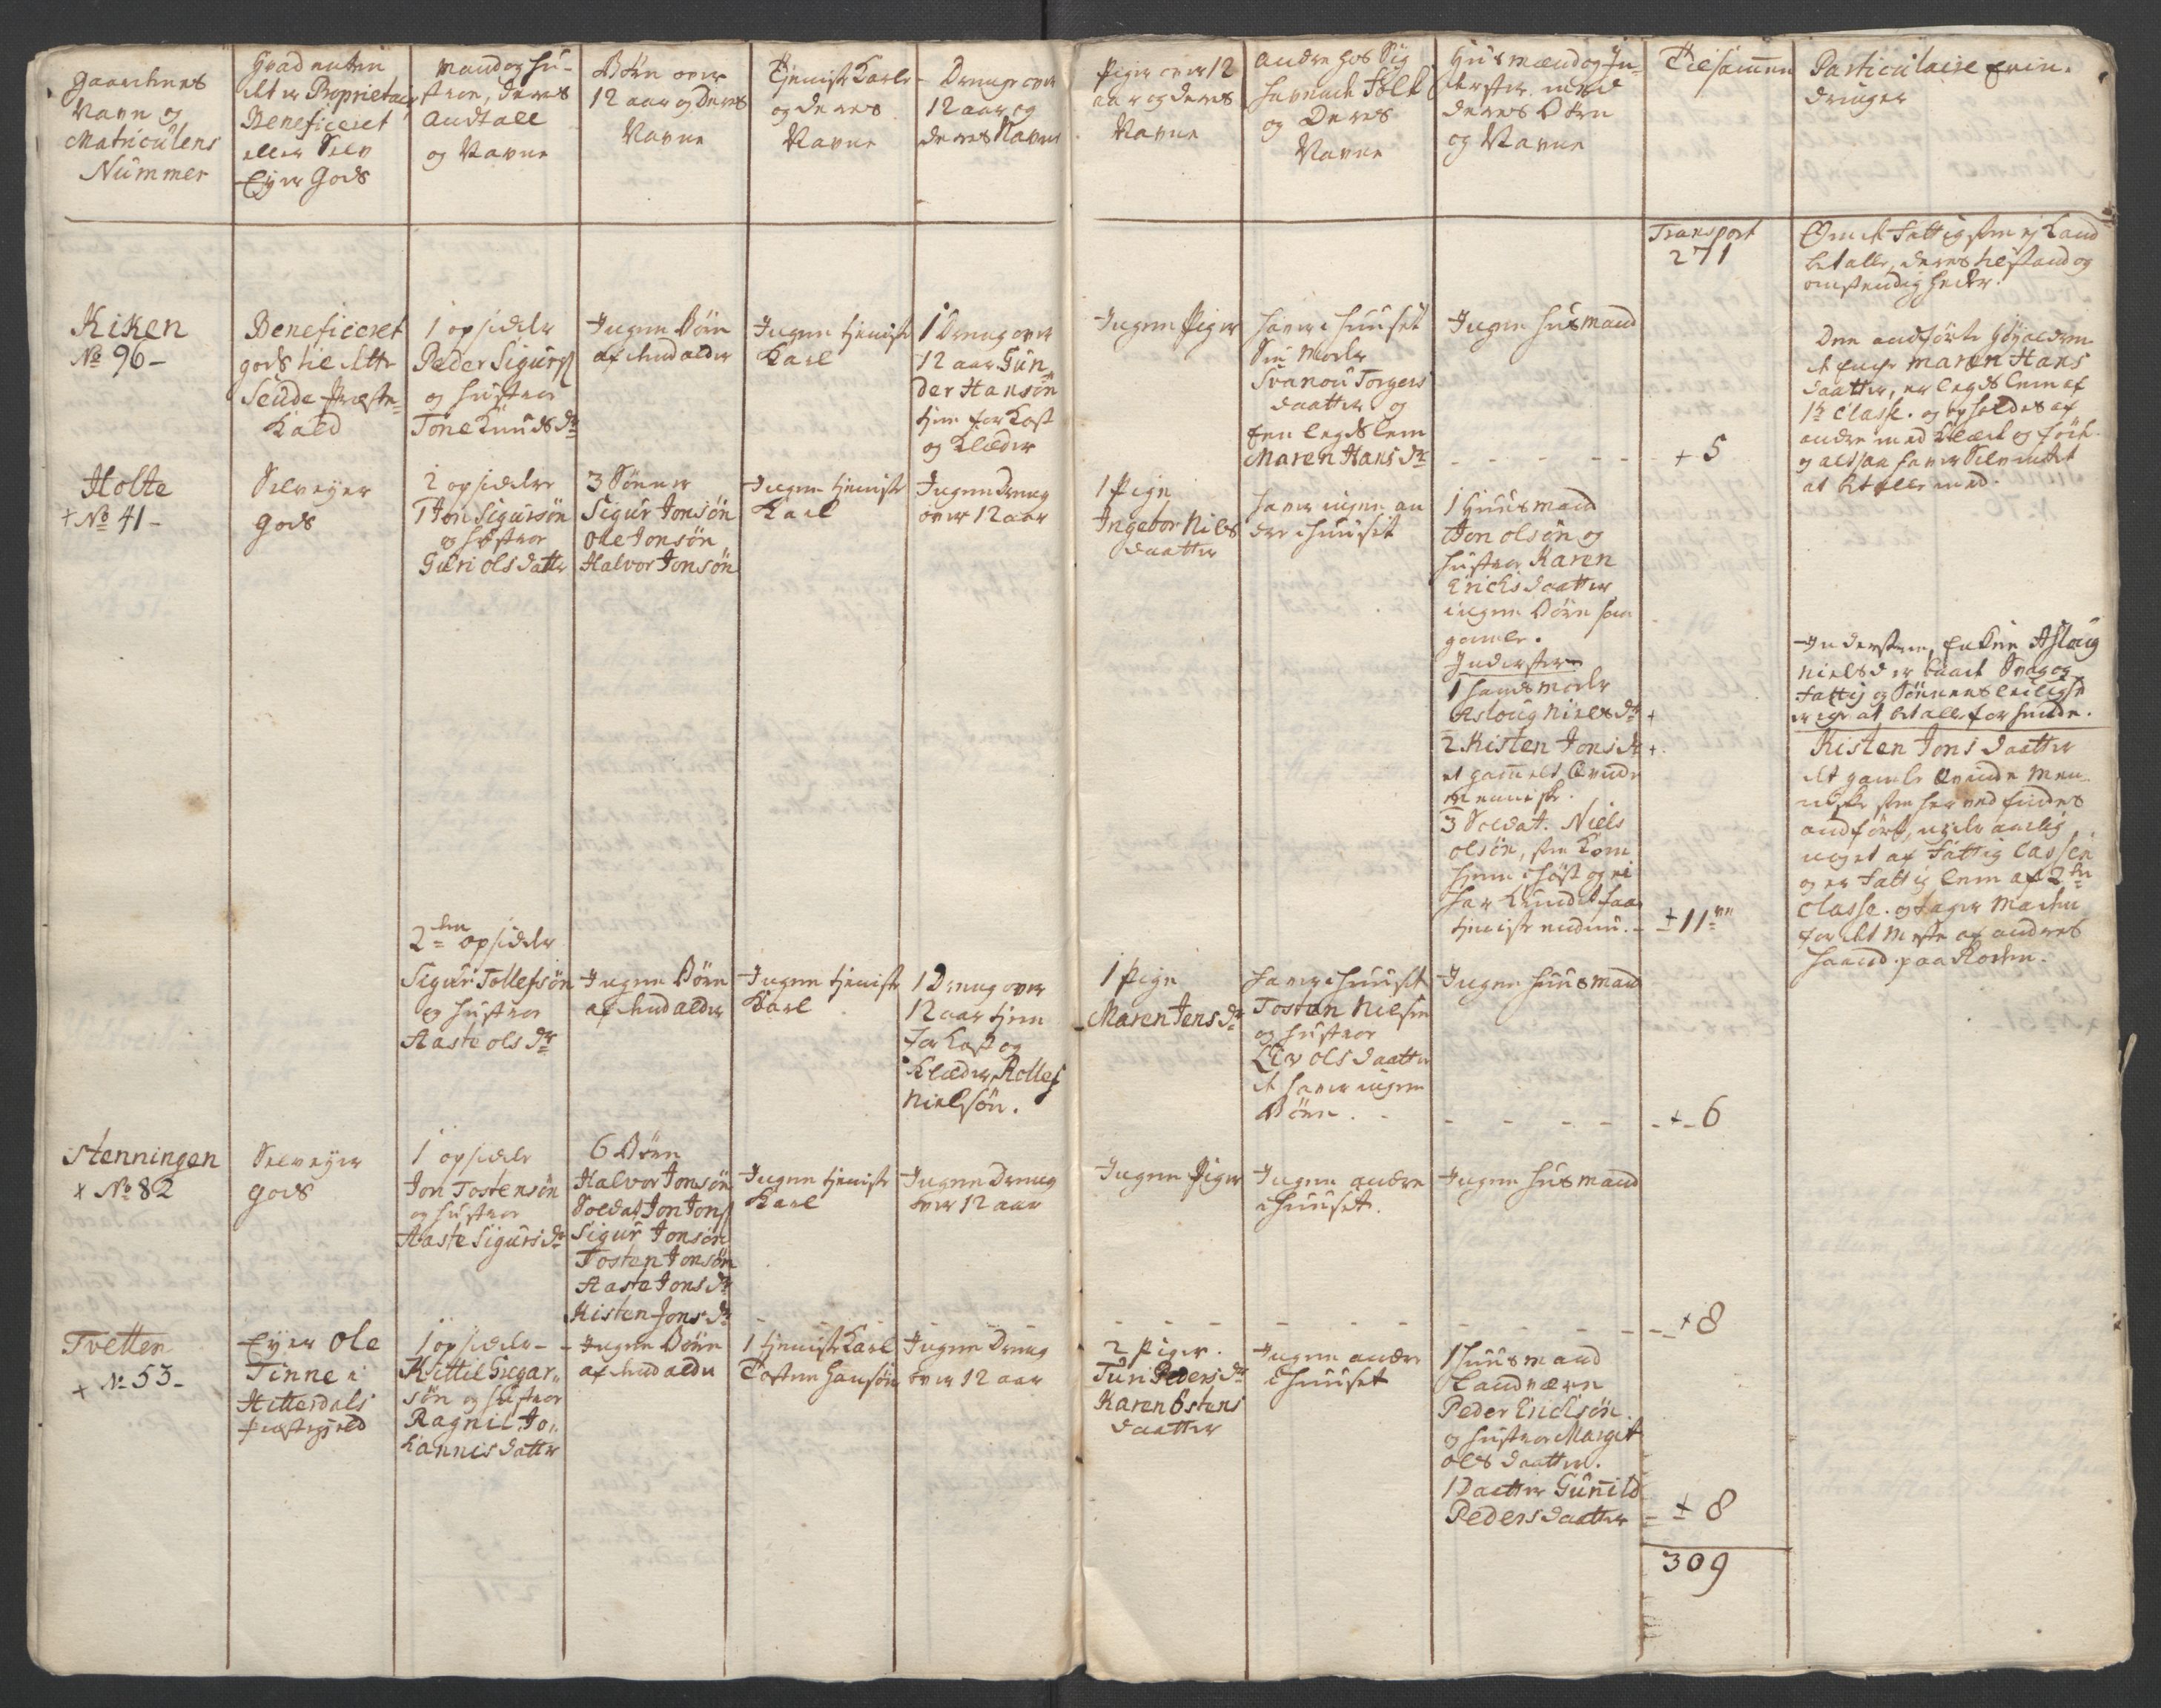 Gaardenes
Navn og
Matriculens
Nummer
Hvad enten
det er Proprietair
Beneficeret
eller Selv
Eyer Gods
Mand og Hu-
stroe, deres
Andtall
og Navne
Børn over
12 aar og deres
Navne
Tienist Karle
og deres
Navne
Drenge over
12 aar og
deres Navne
Piger over 12
aar og deres
Navne
Andre hos Sig
havende Folk
og Deres
Navne
Huusmænd og In-
derster med
deres Børn
og Navne
Tilsammen
Particulaire Erin-
dringer
Transport
271
Om de Fattig som ej kand
betalle, deres tilstand og
omstendigheder.
Kiken
No 96-
Beneficeret
gods til
Seude Præste-
Kald
1 opsidder
Peder Sigurs
og hustroe
Tone Knuds dr
Ingen Børn
af den alder
Ingen tienist
Karl
1 Dreng over
12 aar Gun
der Hansøn
tien for Kost
og Klæder
Ingen Piger
haver i huuset
Sin Moder
Svanou Torgers
daatter og
Een legds lem
Maren Hans dr
Ingen husmand
+ 5
Den andførte
Maren Hans
daatter, er legds lem af
1te Classe. og opholdes af
andre med klæde og føde
og altsaa haver Selv intet
at betalle med.
Holte
+ No 41-
Selveyer
Gods
2 opsidder
1 Jon Sigursøn
og hustroe
Guri ols datter
3 Sønner
Sigur Jonsøn
Ole Jonsøn
Halvor Jonsøn
Ingen tienist
Karl
Ingen Dreng
over 12 aar
1 Pige
Ingebor Niels
daatter
haver ingen an
dre i huuset
1 Huusmand
Jon olsøn og
hustroe Karen
Erichs daatter
ingen Børn saa
gamle.
Inderster
1 hands moder
Asloug Niels dr +
2 Kisten Jons dr +
et gammelt Qvinde
menniske.
3 Soldat. Niels
olsøn, som kom
hiem i høst og ei
har kundet faae
tienist endnu.
+ 11
Indersten, Enken Aslaug
Niels d er baade Svag og
Fattig og Sønnens leilighd
er icke at betalle for hende.
Kisten Jons daatter
det gamle Qvinde Men-
niske som her ved findes
andført, nyder aarlig
noget af Fattig Cassen
og er Fattig lem af 2den
Classe. og tager Maden
for det Meste af andres
haand paa Roden.
2den opsidder
Sigur Tollefsøn
og hustroe
Aaste ols dr
Ingen Børn
af den alder
Ingen tienist
Karl
1 Dreng over
12 aar tien
for Kost og
Klæder, Rollef
Nielsøn.
1 Pige
Maren Jens dr
haver i huuset
Tostan Nielsen
og hustroe
Liv ols daatter
de haver ingen
Børn.
Ingen huusmand
+ 6
Stenningen
x No 82
Selveyer
gods
1 opsidder
Jon Tostensøn
og hustroe
Aaste Sigurs dr
6 Børn
Halvor Jonsøn
Soldat Jon Jons
Sigur Jonsøn
Tosten Jonsøn
Aaste Jons dr
Kisten Jons dr
Ingen tienist
Karl
Ingen Dreng
over 12 aar
Ingen Piger
Ingen andre
i huuset.
Ingen husmand
+ 8
Tvetten
+ No 53-
Eyer Ole
Tinne i
Hitterdals
Præstegield
1 opsidder
Kittil Gregar-
søn og hustroe
Ragnil Jo-
hannis datter
Ingen Børn
af den alder
1 tienist Karl
Tosten Hansøn
Ingen Dreng
over 12 aar
2 Piger.
Turi Peders dr
Karen Ostens
daatter
Ingen andre
i huuset
1 huusmand
Landværn
Peder Erichsøn.
og hustroe Margit
ols daatter.
1 Daatter Gunild
Peders daatter
+ 8
309